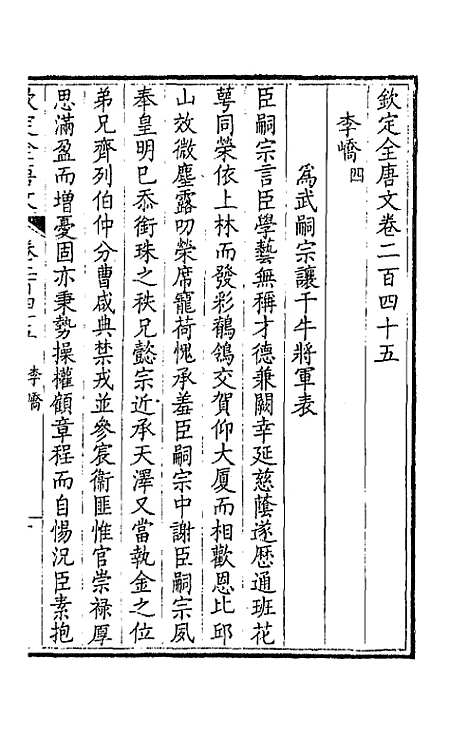 欽定全唐文卷二百四十五
李嶠四
為武嗣宗讓千牛將軍表
臣嗣宗言臣學藝無稱才德兼闕幸延慈蔭遂歷通班花
萼同榮依上林而發彩鶺鴒交賀仰大廈而相歡恩比邱
山效微塵露叨榮席寵荷愧承羞臣嗣宗中謝臣嗣宗夙
奉皇明已忝銜珠之秩兄懿宗近承天澤又當執金之位
弟兄齊列伯仲分曹咸典禁戎並參宸衞匪惟官崇祿厚
思滿盈而增憂固亦秉勢操權顧章程而自惕況臣素抱
欽定全唐文 卷二百四十五 李嶠 一